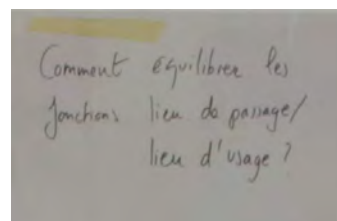 Comment équilibrer les
fonctions lieu de passage/
lieu d'usage ?